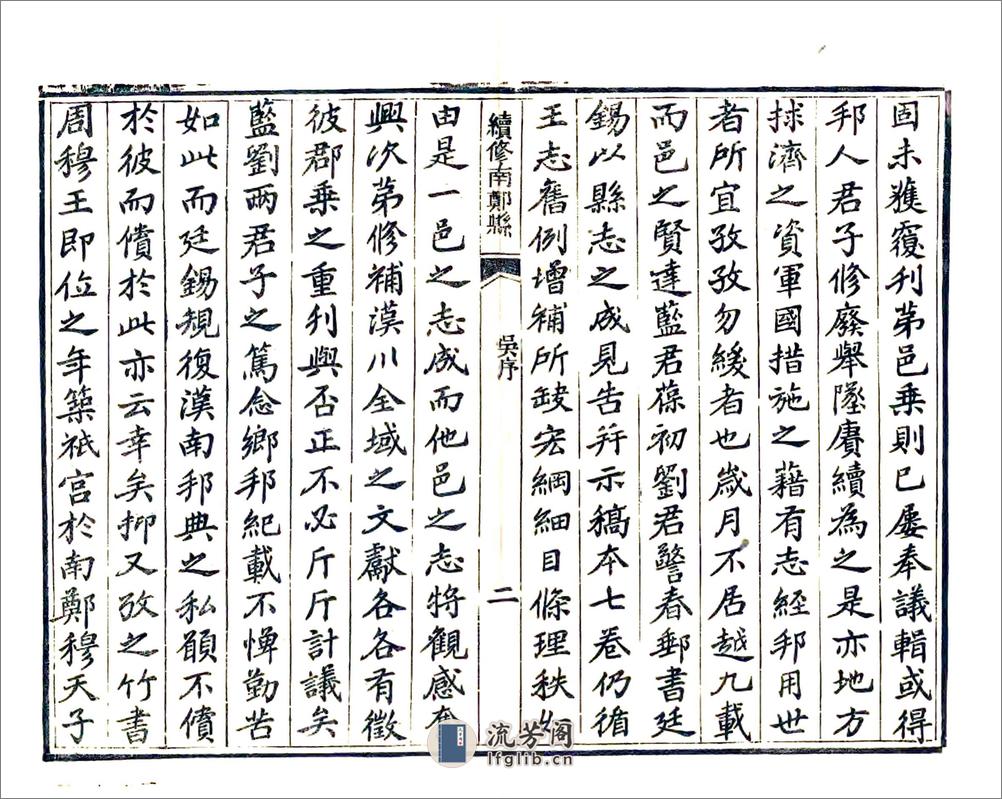 固未獲覆刋苐邑乘則已屡奉議輯或得
邦人君子修廢舉墜賡續為之是亦地方
捄濟之資軍國措施之藉有志經邦用世
者所宜孜孜勿緩者也歳月不居越九載
而邑之賢達藍君葆初劉君詧春郵書廷
錫以縣志之成見告并示稿本七卷仍循
王志舊例增補所缺宏綱細目條理秩
續修南鄭縣
吳序
二
由是一邑之志成而他邑之志將觀感
興次苐修補漢川全域之文獻各各有徵
彼郡乘之重刋與否正不必斤斤計議矣
藍劉兩君子之篤念鄉邦紀載不憚勤苦
如此而廷錫規復漢南邦典之私願不償
於彼而償於此亦云幸矣抑又攷之竹書
周穆王即位之年築祇宮於南鄭穆天子
流芳阁
lfglib.cn